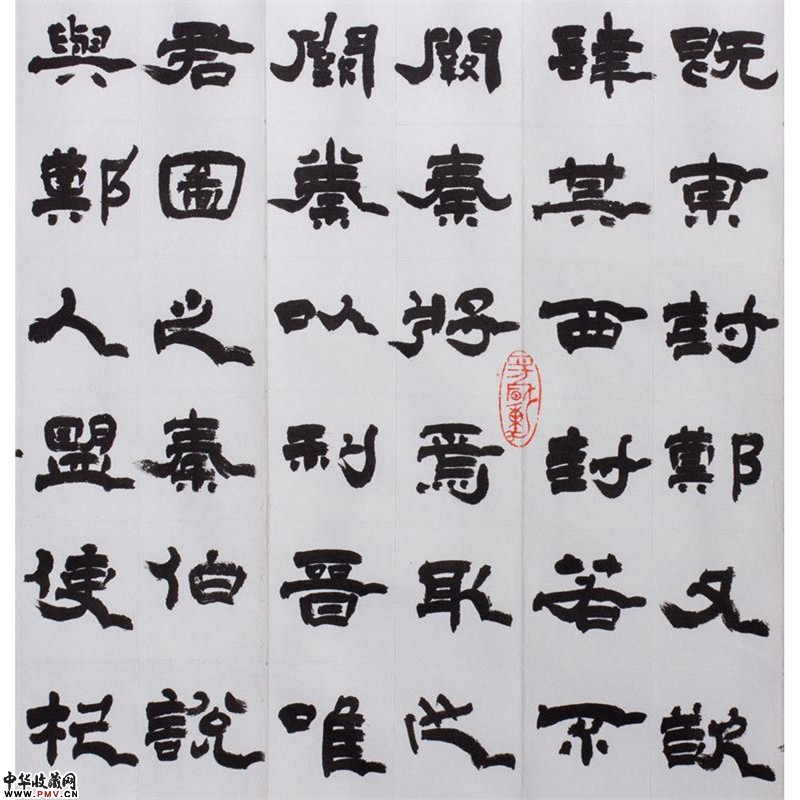 既東封鄭又欲
肆其西封若不
闕秦將焉取之
闕秦以利晉唯
君圖之秦伯說
與鄭人盟使杞
中华收藏网
www.PMV.CN